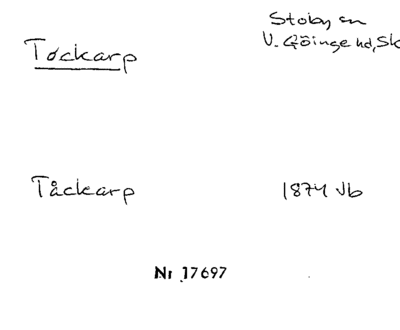 Tockarp
Stoby sn
V. Göinge hd, Sk
Tåckarp
1874 Jb
Nr 17697